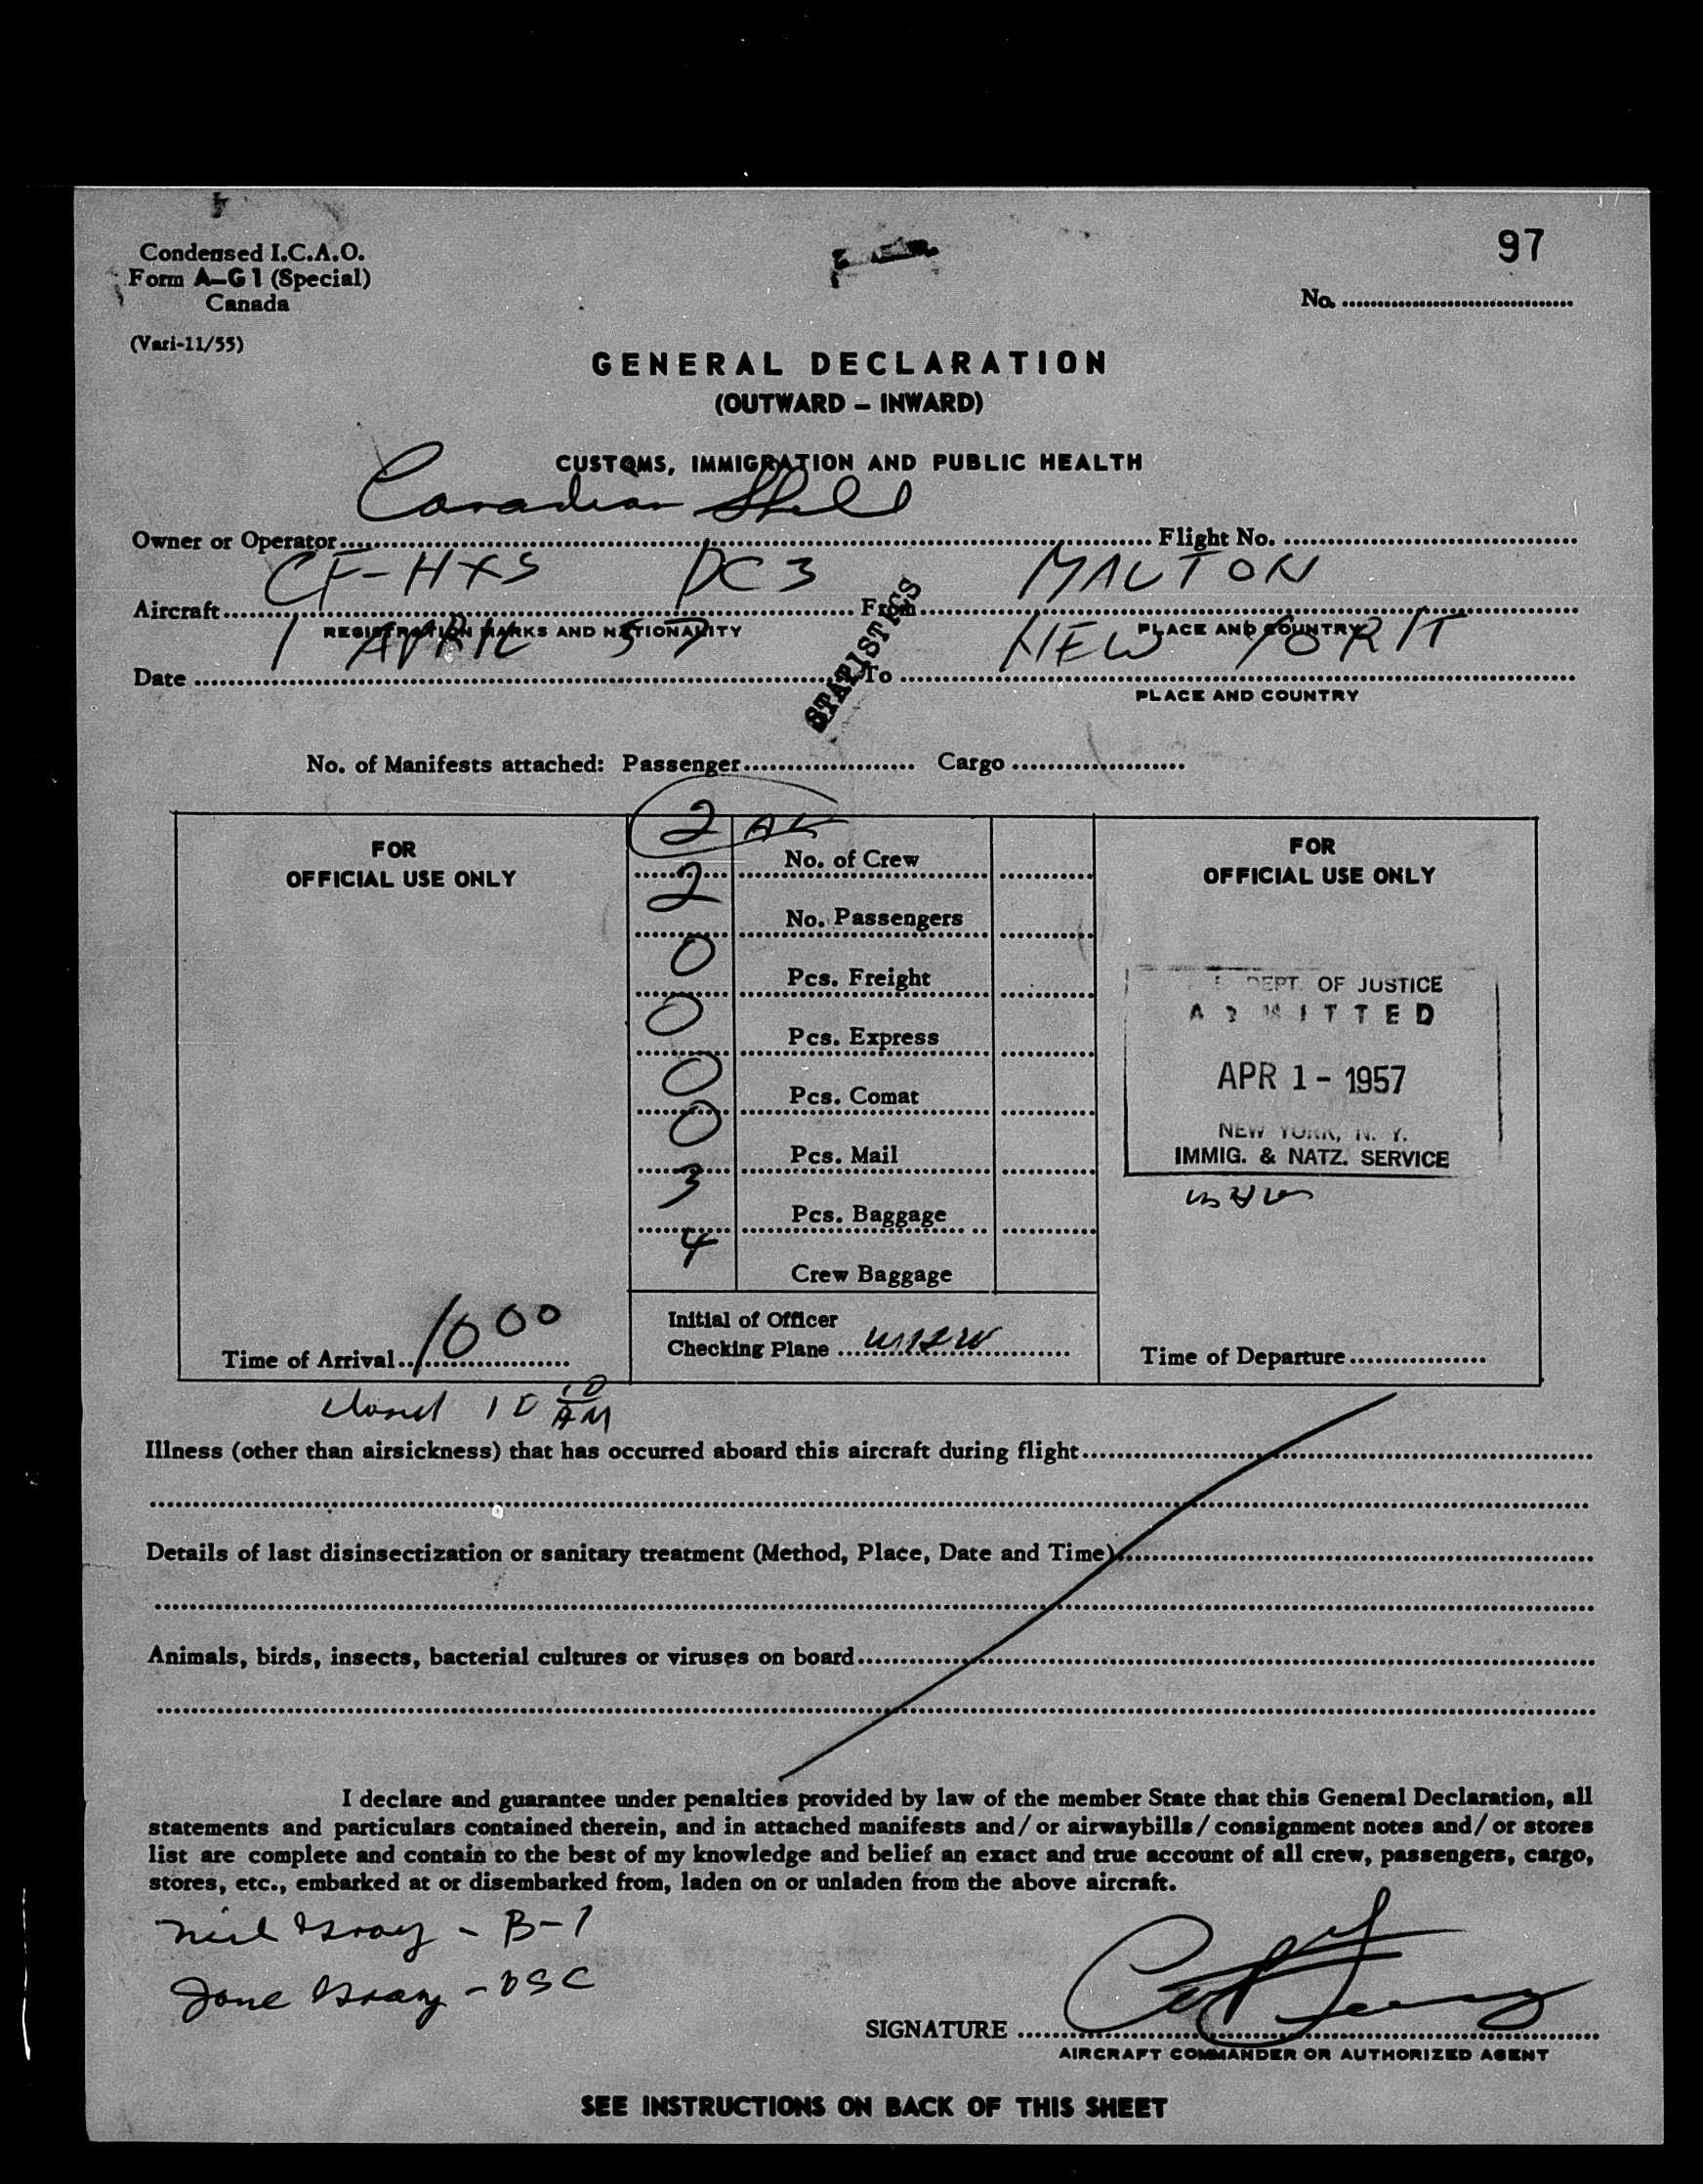 97
Condensed I.C.A.O.
Form A-G 1 (Special)
Canada
No. ........
(Vari-11/55)
GENERAL DECLARATION
(OUTWARD – INWARD)
CUSTOMS, IMMIGRATION AND PUBLIC HEALTH
Canadian Shell
Owner or Operator........ Flight No. ........
CF-HXS DC3 MALTON
Aircraft........ From........
REGISTRATION MARKS AND NATIONALITY PLACE AND COUNTRY
1 APRIL 57 NEW YORK
Date ........ To ........
PLACE AND COUNTRY
STATISTICS
No. of Manifests attached: Passenger........ Cargo ........
FOR
OFFICIAL USE ONLY
2 No. of Crew
2 No. Passengers
0 Pcs. Freight
0 Pcs. Express
0 Pcs. Comat
0 Pcs. Mail
3 Pcs. Baggage
4 Crew Baggage
FOR
OFFICIAL USE ONLY
DEPT. OF JUSTICE
ADMITTED
APR 1 - 1957
NEW YORK, N. Y.
IMMIG. & NATZ. SERVICE
Time of Arrival.. 1000
Initial of Officer
Checking Plane ........
Time of Departure........
10 10 AM
Illness (other than airsickness) that has occurred aboard this aircraft during flight........
Details of last disinsectization or sanitary treatment (Method, Place, Date and Time)........
Animals, birds, insects, bacterial cultures or viruses on board........
I declare and guarantee under penalties provided by law of the member State that this General Declaration, all
statements and particulars contained therein, and in attached manifests and/or airwaybills/consignment notes and/or stores
list are complete and contain to the best of my knowledge and belief an exact and true account of all crew, passengers, cargo,
stores, etc., embarked at or disembarked from, laden on or unladen from the above aircraft.
Neil Gray - B-1
Jane Gray - USC
SIGNATURE ........
AIRCRAFT COMMANDER OR AUTHORIZED AGENT
SEE INSTRUCTIONS ON BACK OF THIS SHEET